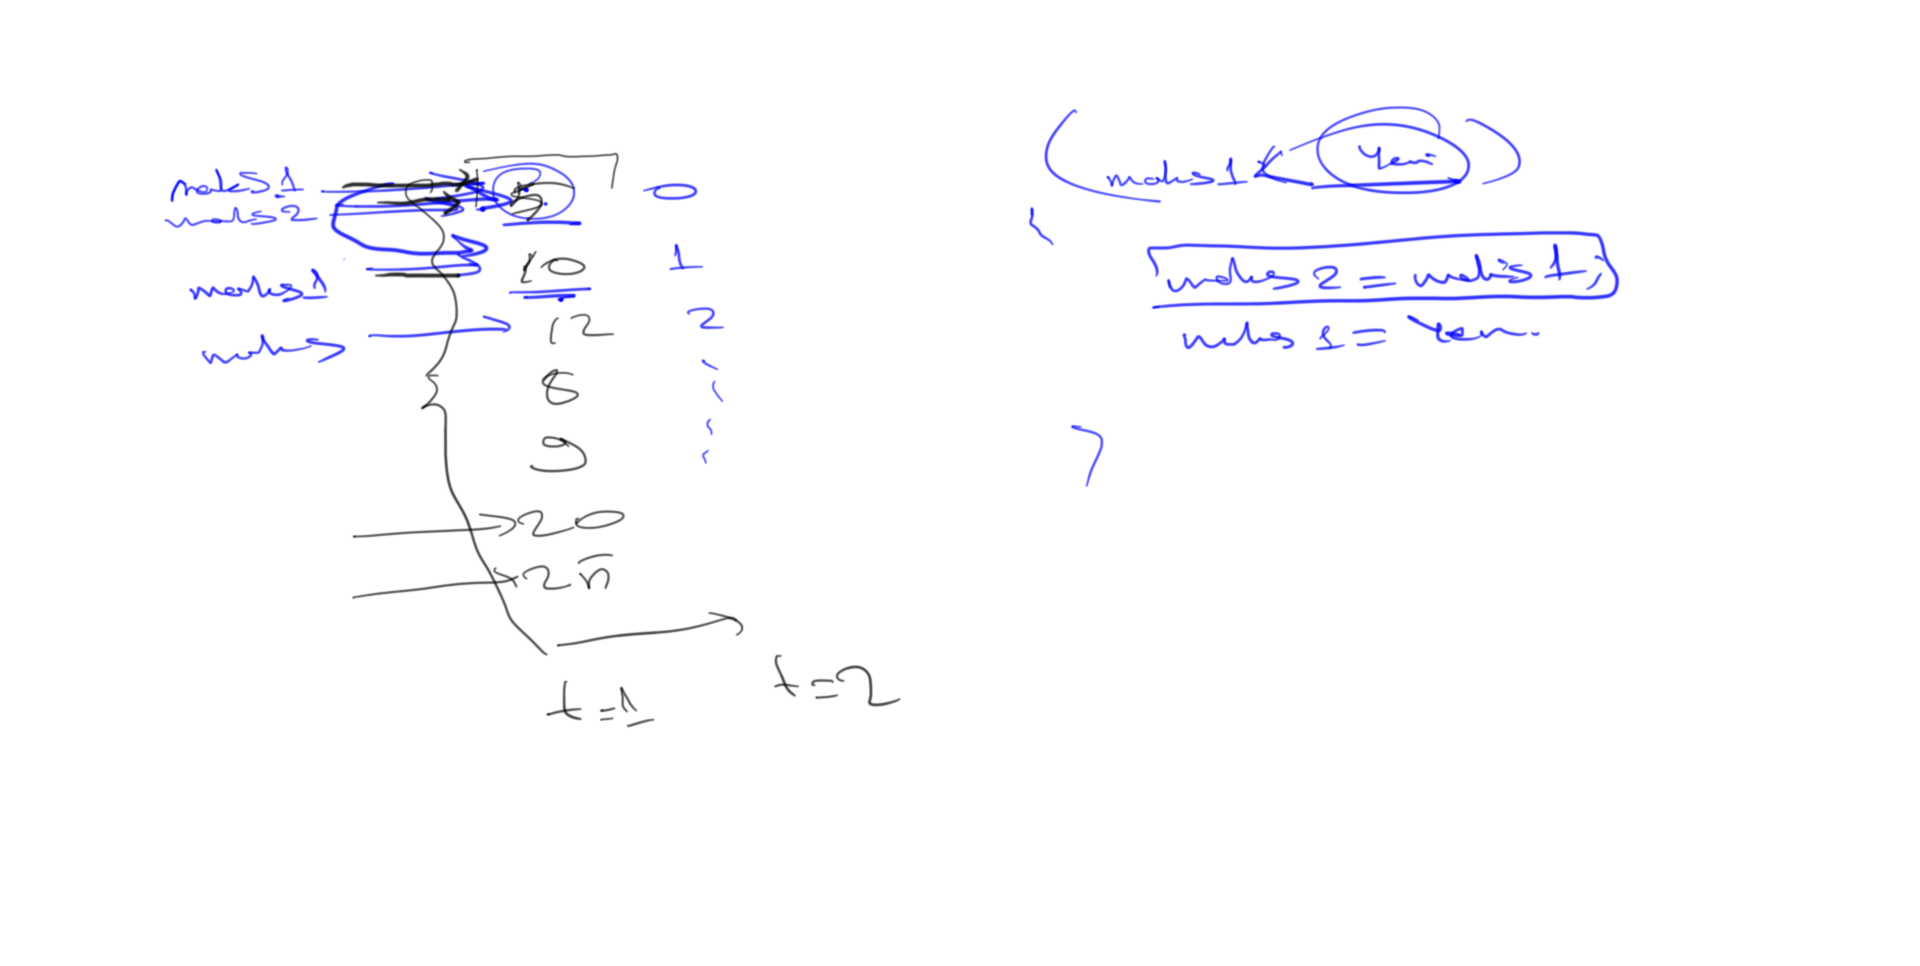 maks 1 5 0
maks 2
maks 1 10 1
maks 12 2
8
9
20
25
t=1
t=2
( maks 1 < Yeni )
{
maks 2 = maks 1;
maks 1 = Yeni.
}